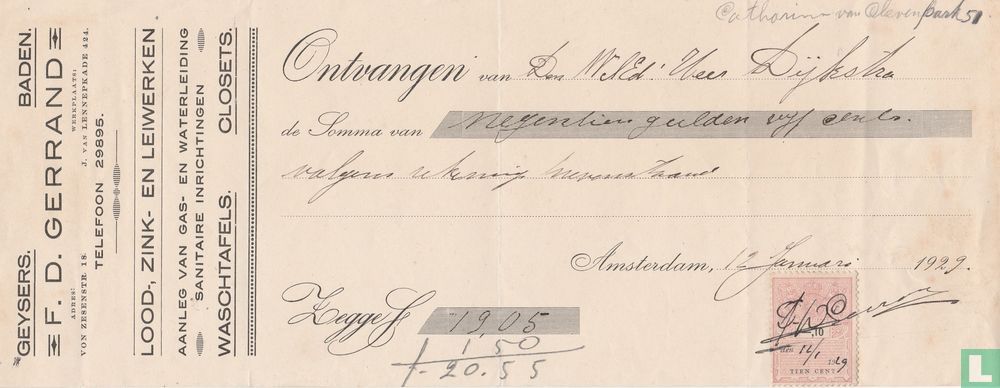 GEYSERS. BADEN.
F. D. GERRAND
ADRES: WERKPLAATS:
VON ZESENSTR 18. J. VAN LENNEPKADE 424.
TELEFOON 29895.
LOOD-, ZINK- EN LEIWERKEN
AANLEG VAN GAS- EN WATERLEIDING
SANITAIRE INRICHTINGEN
WASCHTAFELS. CLOSETS.
Catharina van Clevenpark 51
Ontvangen van Den WelEd. Heer Dijkstra
de Somma van Negentien gulden vijf cents.
volgens rekening
Amsterdam, 12 Januari 1929.
Zegge f 19,05
1.50
f. 20.55
,10
den 12/1 1929
TIEN CENT